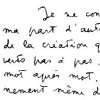 Je ne con
ma part d'aut
de la création q
verts pas à pas
mot après mot,
nement même d